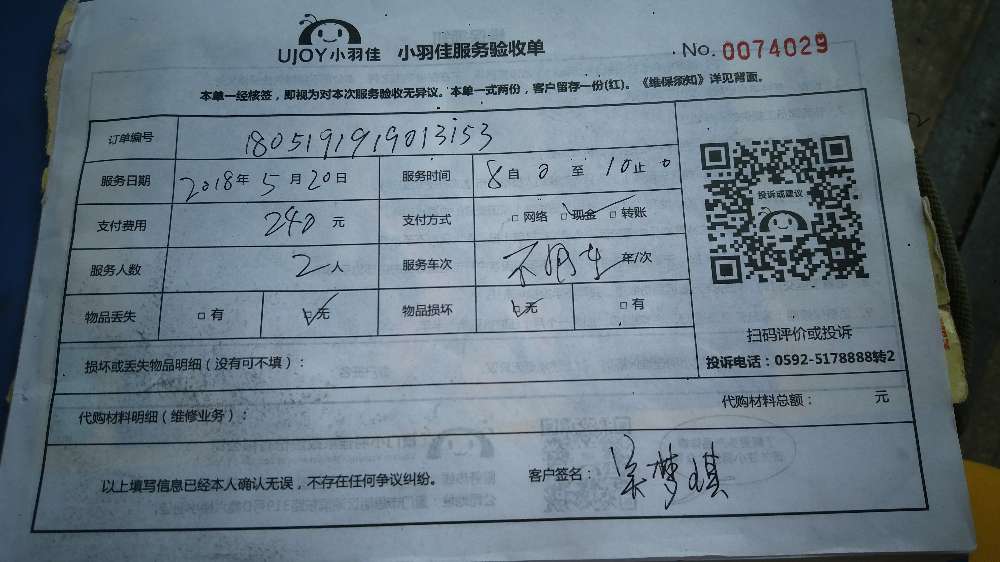 UJOY小羽佳 小羽佳服务验收单 No. 0074029
本单一经核签，即视为对本次服务验收无异议。本单一式两份，客户留存一份(红)。《维保须知》详见背面。
订单编号 1805191919013153
服务日期 2018年5月20日 服务时间 8自0至10止0
支付费用 240元 支付方式 □网络 □现金 □转账
服务人数 2人 服务车次 不用车 年/次
物品丢失 □有 □无 物品损坏 □无 □有
投诉或建议
扫码评价或投诉
投诉电话：0592-5178888转2
损坏或丢失物品明细（没有可不填）：
代购材料明细（维修业务）： 代购材料总额： 元
以上填写信息已经本人确认无误，不存在任何争议纠纷。 客户签名： 梁梦娸